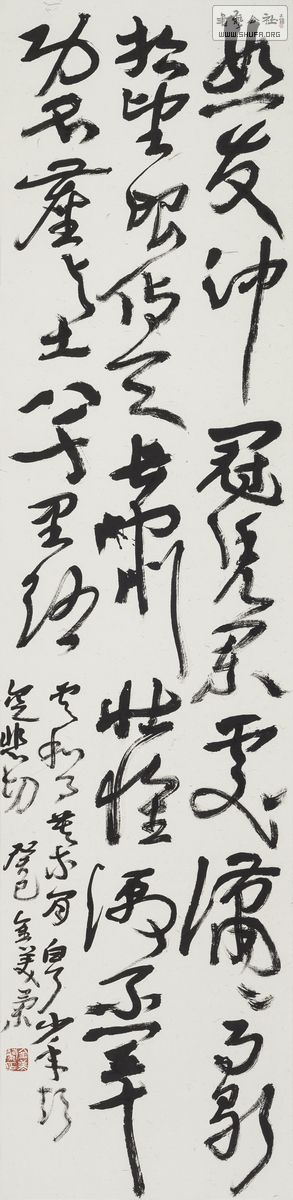 书艺公社
WWW.SHUFA.ORG
怒发冲冠凭阑处潇潇雨歇
抬望眼仰天长啸壮怀激烈三十
功名尘与土八千里路
云和月莫等闲白了少年头
空悲切 癸巳